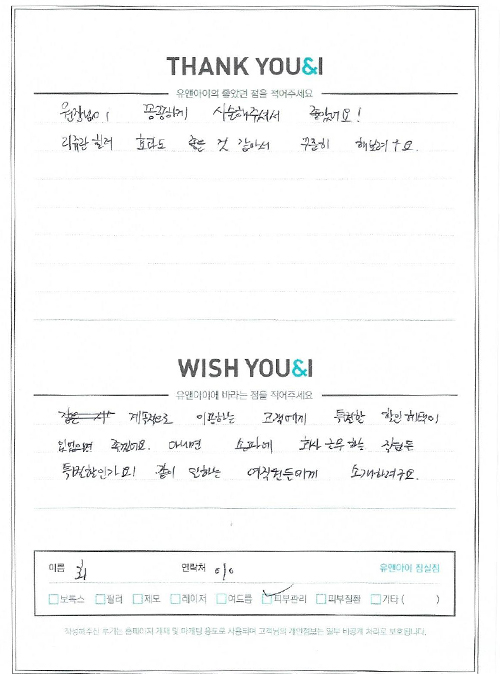 THANK YOU&I
유앤아이의 좋았던 점을 적어주세요
원장님이 꼼꼼하게 시술해주셔서 좋았어요!
리쥬란힐러 효과도 좋은 것 같아서 꾸준히 해보려구요.
WISH YOU&I
유앤아이에 바라는 점을 적어주세요
계속적으로 이용하는 고객에게 특별한 할인 혜택이
있었으면 좋겠어요. 아니면 회사 근무하는 직원들
특별할인가요! 같이 일하는 여직원들에게 소개하려구요.
이름 최 연락처 010 유앤아이 잠실점
보톡스 필러 제모 레이저 여드름 피부관리 피부질환 기타 ( )
작성해주신 후기는 홈페이지 게재 및 마케팅 용도로 사용되며 고객님의 개인정보는 일부 비공개 처리로 보호됩니다.